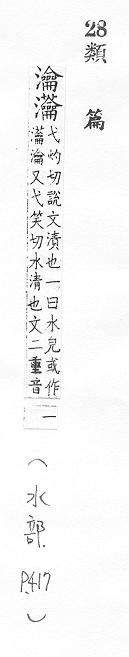 28
類篇
瀹㶕弋灼切說文漬也一曰水皃或作
㶕瀹又弋笑切水清也文二重音
一
(水部 P.417)